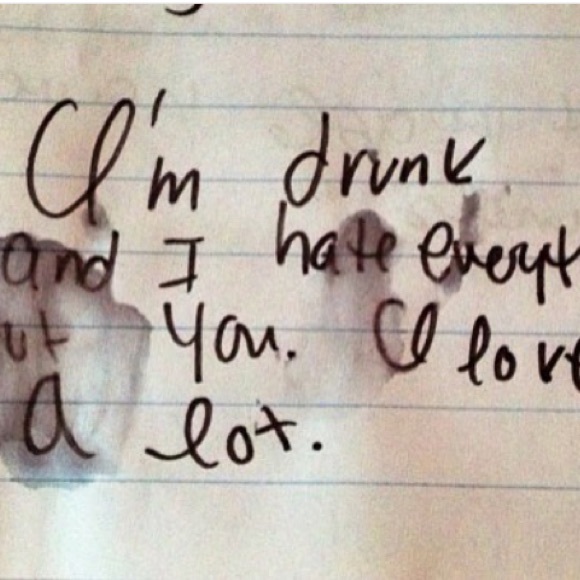 I'm drunk
and I hate everyt
ut you. I love
A lot.